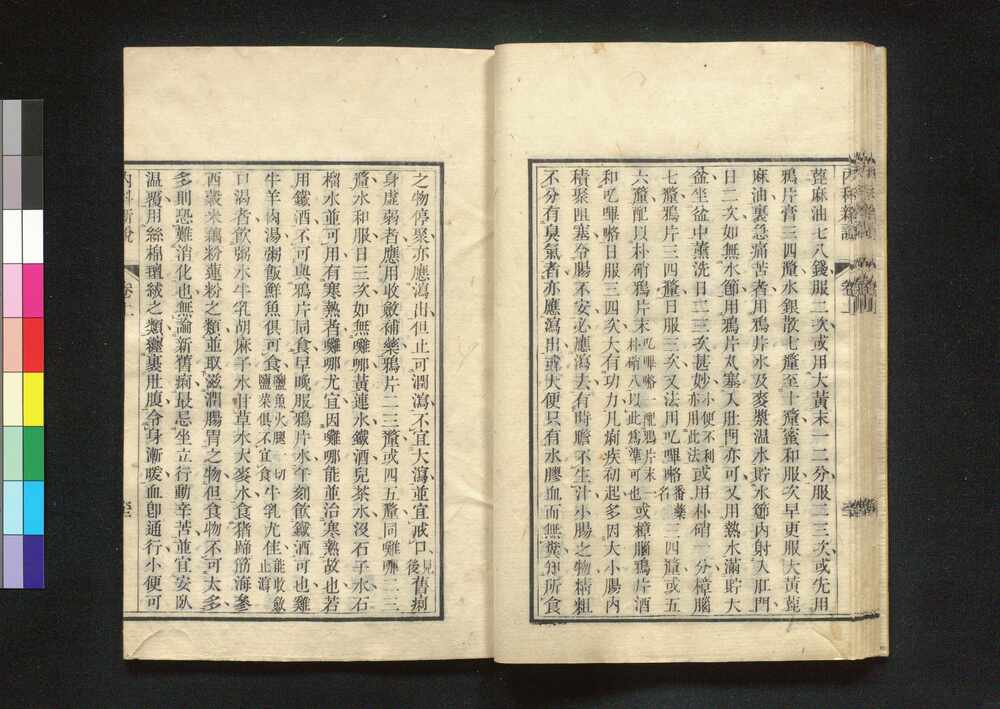 蓖麻油七八錢服二次或用大黃末一二分服二三次或先用
鴉片膏三四釐水銀散七釐至十釐蜜和服次早更服大黃蓖
麻油裏急痛苦者用鴉片水及麥漿温水貯水節內射入肛門
日二次如無水節用鴉片丸塞入肚門亦可又用熱水滿貯大
盆坐盆中薰洗日二三次甚妙小便不利亦用此法或用朴硝一分樟腦
七釐鴉片三四釐日服三次又法用叱嗶咯番藥名三四釐或五
六釐配以朴硝鴉片末叱嗶咯一釐鴉片末一朴硝八以此爲準可也或樟腦鴉片酒
和叱嗶咯日服三四次大有功力凡痢疾初起多因大小腸內
積聚阻塞令腸不安必應瀉去有時膽不生汁小腸之物稍粗
不分有臭氣者亦應瀉出或大便只有水膠血而無糞知所食
之物停聚亦應瀉出但止可潤瀉不宜大瀉並宜戒口見後舊痢
身虛弱者應用收斂補藥鴉片二三釐或四五釐同雞哪二三
釐水和服日三次如無雞哪黃連水鐵酒兒茶水沒石子水石
榴水並可用有寒熱者雞哪尤宜因雞哪能並治寒熱故也若
用鐵酒不可與鴉片同食早晚服鴉片水午刻飲鐵酒可也雞
牛羊肉湯粥飯鮮魚俱可食鹽魚火腿一切鹽菜俱不宜食牛乳尤佳能收斂止瀉
口渴者飲粥水牛乳胡麻子水甘草水大麥水食猪蹄筋海參
西穀米藕粉蓮粉之類並取滋潤腸胃之物但食物不可太多
多則恐難消化也無論新舊痢最忌坐立行動辛苦並宜安臥
温覆用絲棉環絨之類纏裹肚腹令身漸暖血卽通行小便可
內科新說
卷上